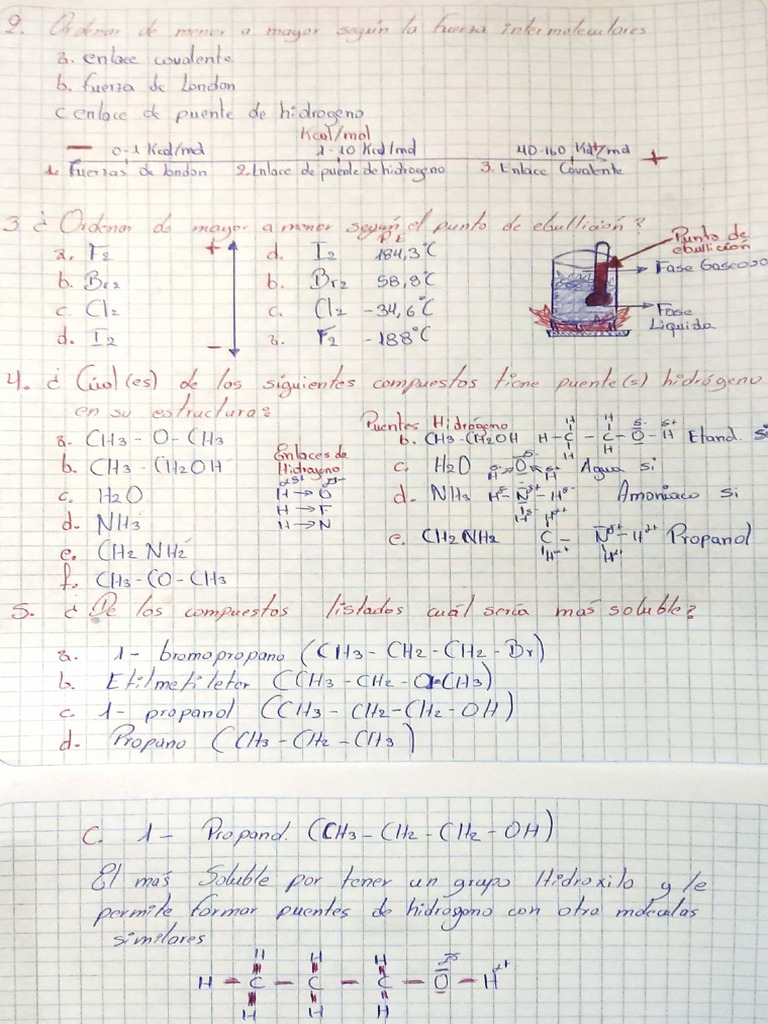 2. Ordenar de menor a mayor según la fuerza intermoleculares
a. enlace covalente
b. fuerza de London
c. enlace de puente de hidrogeno
Kcal/mol
− 0-1 Kcal/mol 1-10 Kcal/mol 40-160 Kcal/mol +
1. Fuerzas de london 2. Enlace de puente de hidrogeno 3. Enlace Covalente
3 ¿ Ordenar de mayor a menor según el punto de ebullición?
P.E
a. F2 + d. I2 184,3°C
b. Br2 b. Br2 58,8°C
c. Cl2 c. Cl2 -34,6°C
d. I2 − a. F2 -188°C
Punto de
ebullición
Fase Gaseosa
Fase
Liquida
4. ¿ Cuál(es) de los siguientes compuestos tiene puente(s) hidrógeno
en su estructura?
a. CH3 - O - CH3
b. CH3 - CH2OH
c. H2O
d. NH3
e. CH2 NH2
f. CH3 - CO - CH3
Enlaces de
Hidrogeno
H → O
H → F
H → N
Puentes Hidrógeno
b. CH3-CH2OH H - C - C - O - H Etanol si
c. H2O Agua si
d. NH3 H - N - H Amoniaco si
e. CH2 NH2 C - N - H Propanol
5. ¿ De los compuestos listados cuál sería más soluble?
a. 1- bromopropano (CH3 - CH2 - CH2 - Br)
b. Etilmetileter (CH3 - CH2 - O - CH3)
c. 1- propanol (CH3 - CH2 - CH2 - OH)
d. Propano (CH3 - CH2 - CH3)
C. 1- Propanol. (CH3 - CH2 - CH2 - OH)
El mas Soluble por tener un grupo Hidroxilo y le
permite formar puentes de hidrógeno con otra moleculas
similares
H H H
H - C - C - C - O - H
H H H